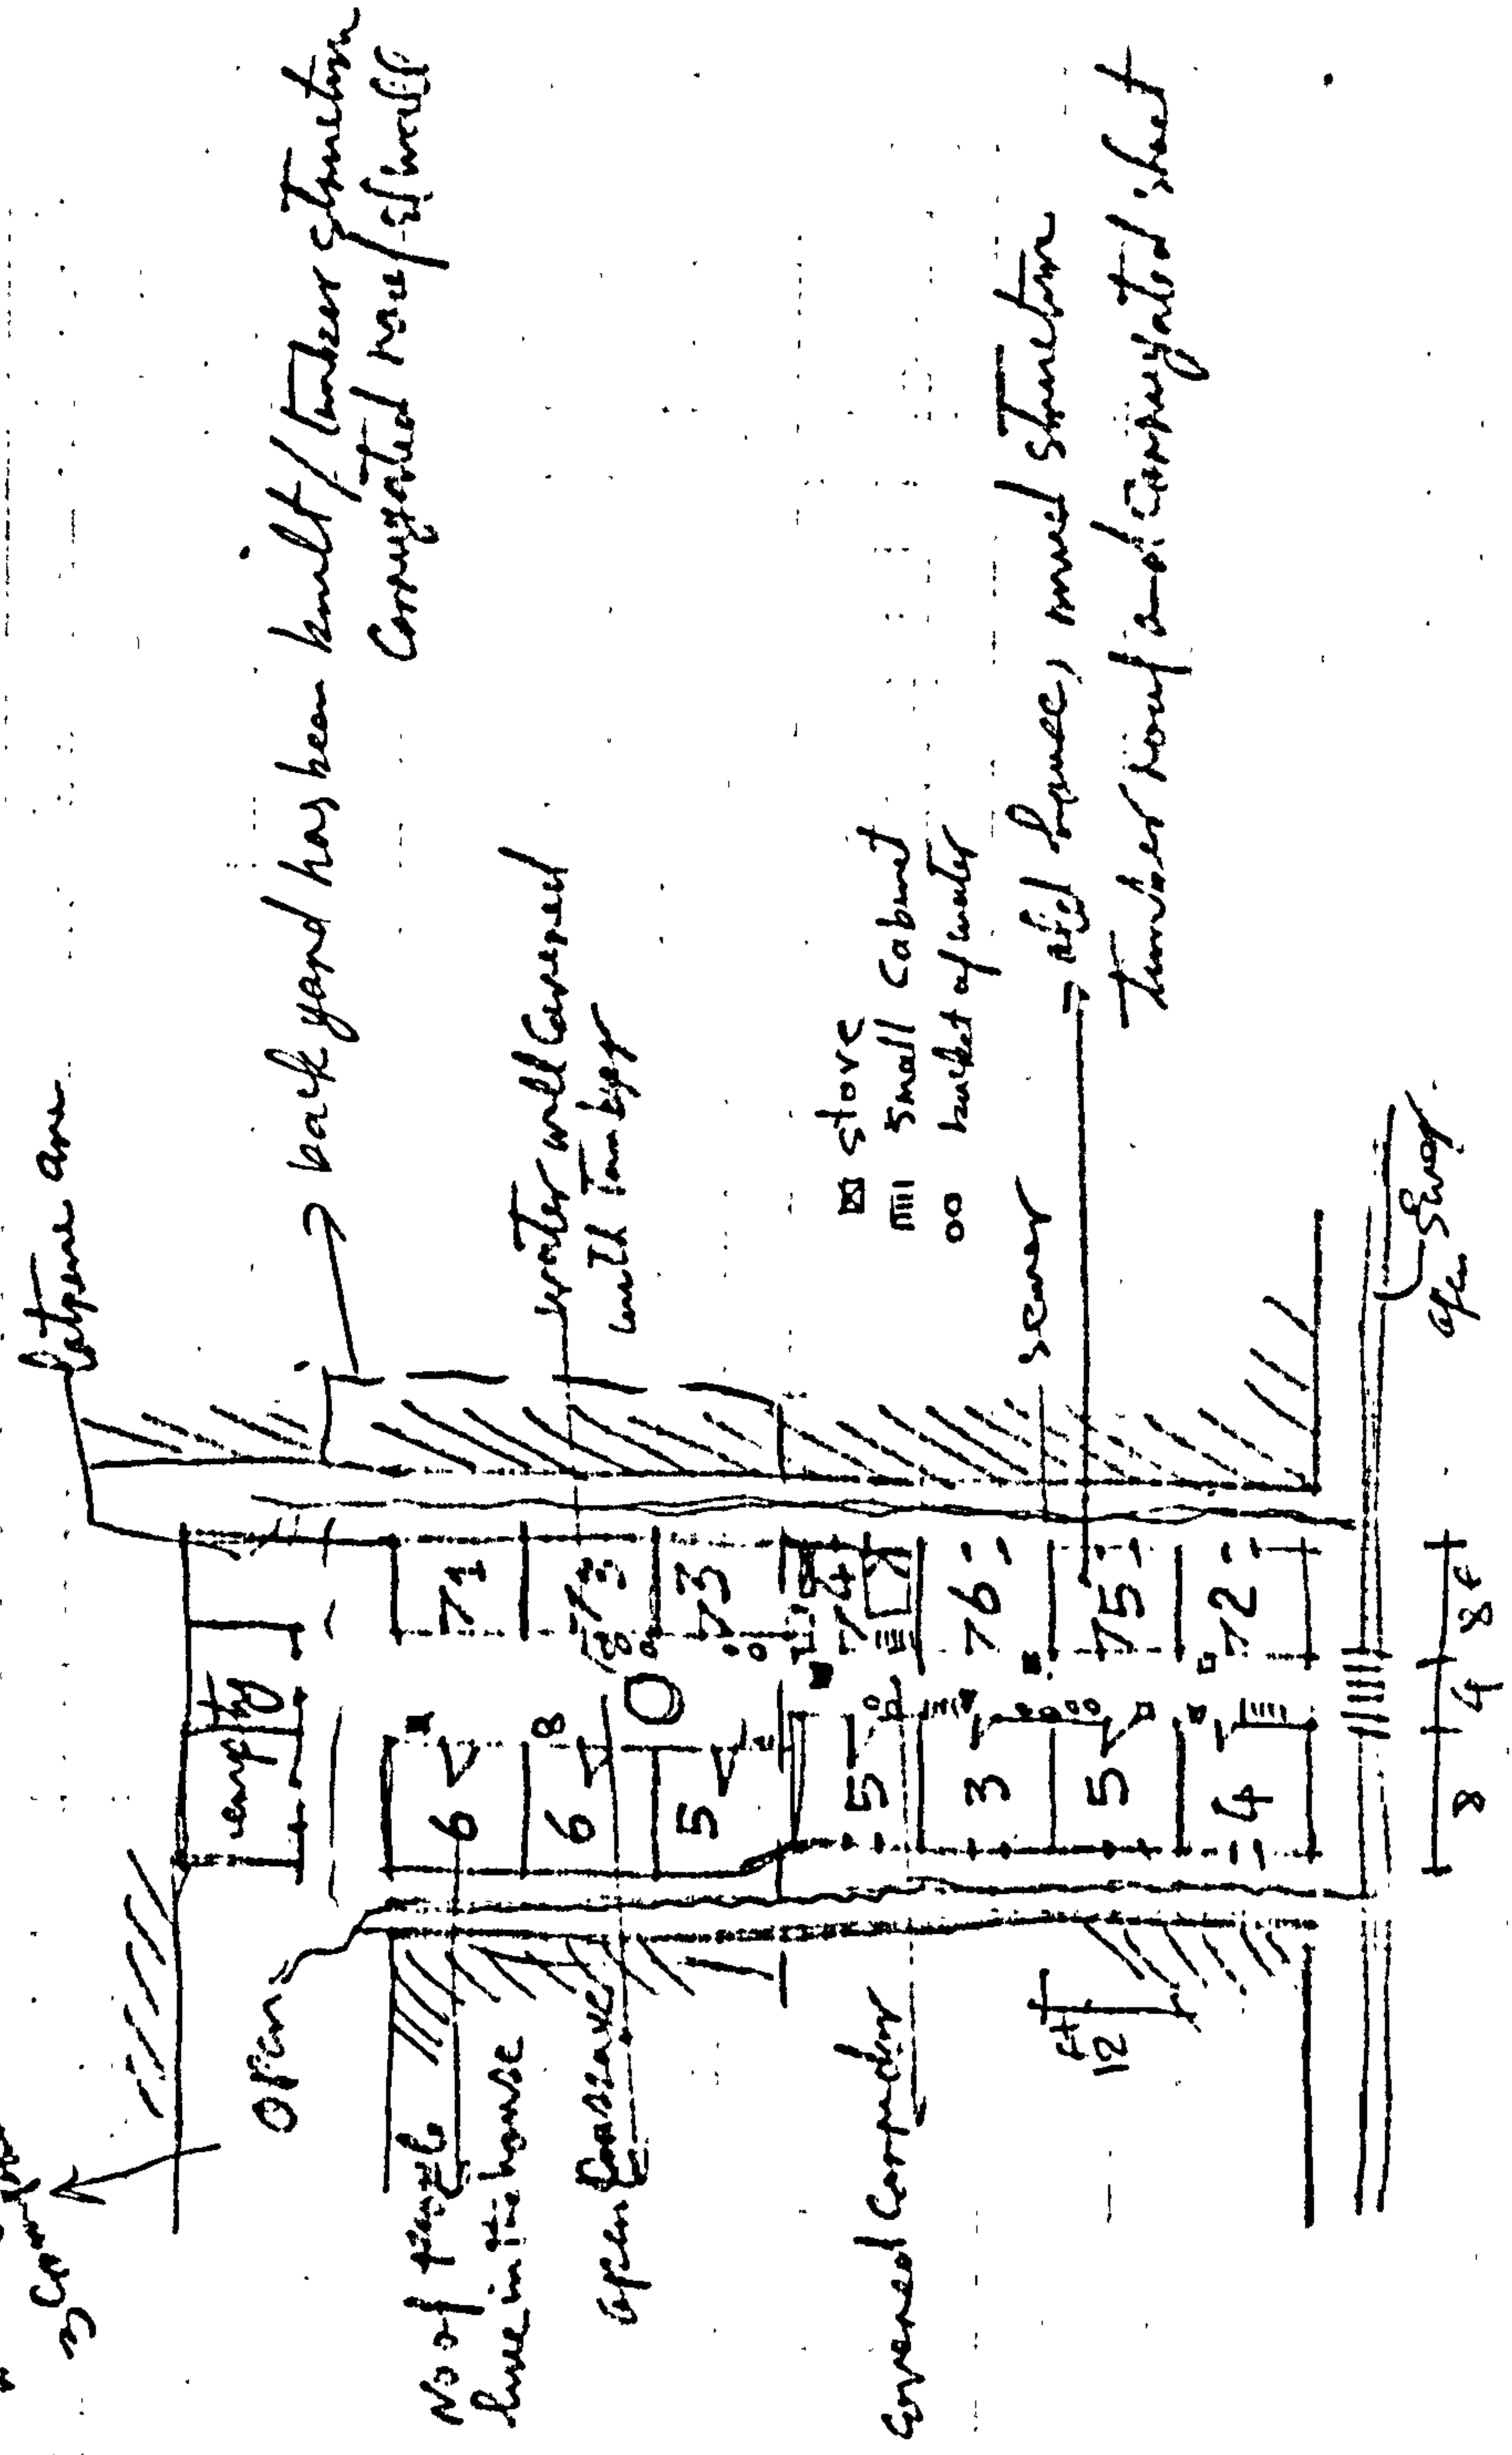 back yard has been built / timber structure
Corrugated roof / st wall
water well covered
with
store
small cabinet
bucket of water
sewer
old house, mud structure
timber roof and corrugated sheet
open
empty
No of people
live in the house
open
Covered Corridor
12 ft
71
73
73
74
76
75
72
6
6
8
5
5
3
5
4
8
4
8